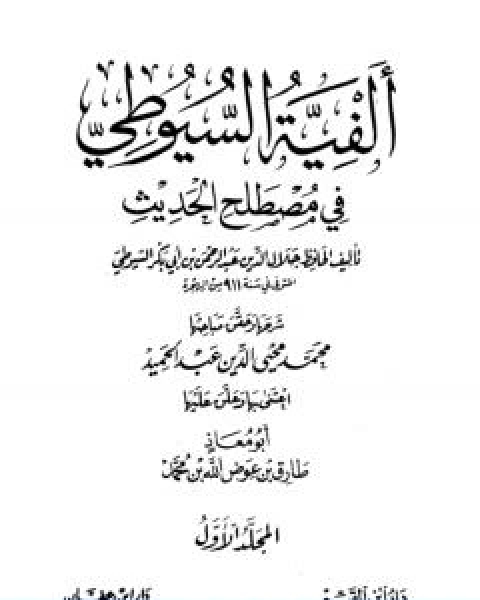 أَلْفِيَّةُ السُّيُوطِيِّ
فِي مُصْطَلَحِ الْحَدِيثِ
تأليف الحافظ جلال الدين عبد الرحمن بن أبي بكر السيوطي
المتوفى في سنة ٩١١ من الهجرة
شرحها وحقق مباحثها
محمد محيي الدين عبد الحميد
اعتنى بها وعلق عليها
أبو معاذ
طارق بن عوض الله بن محمد
المجلد الأول
دار ابن القيم
دار ابن عفان